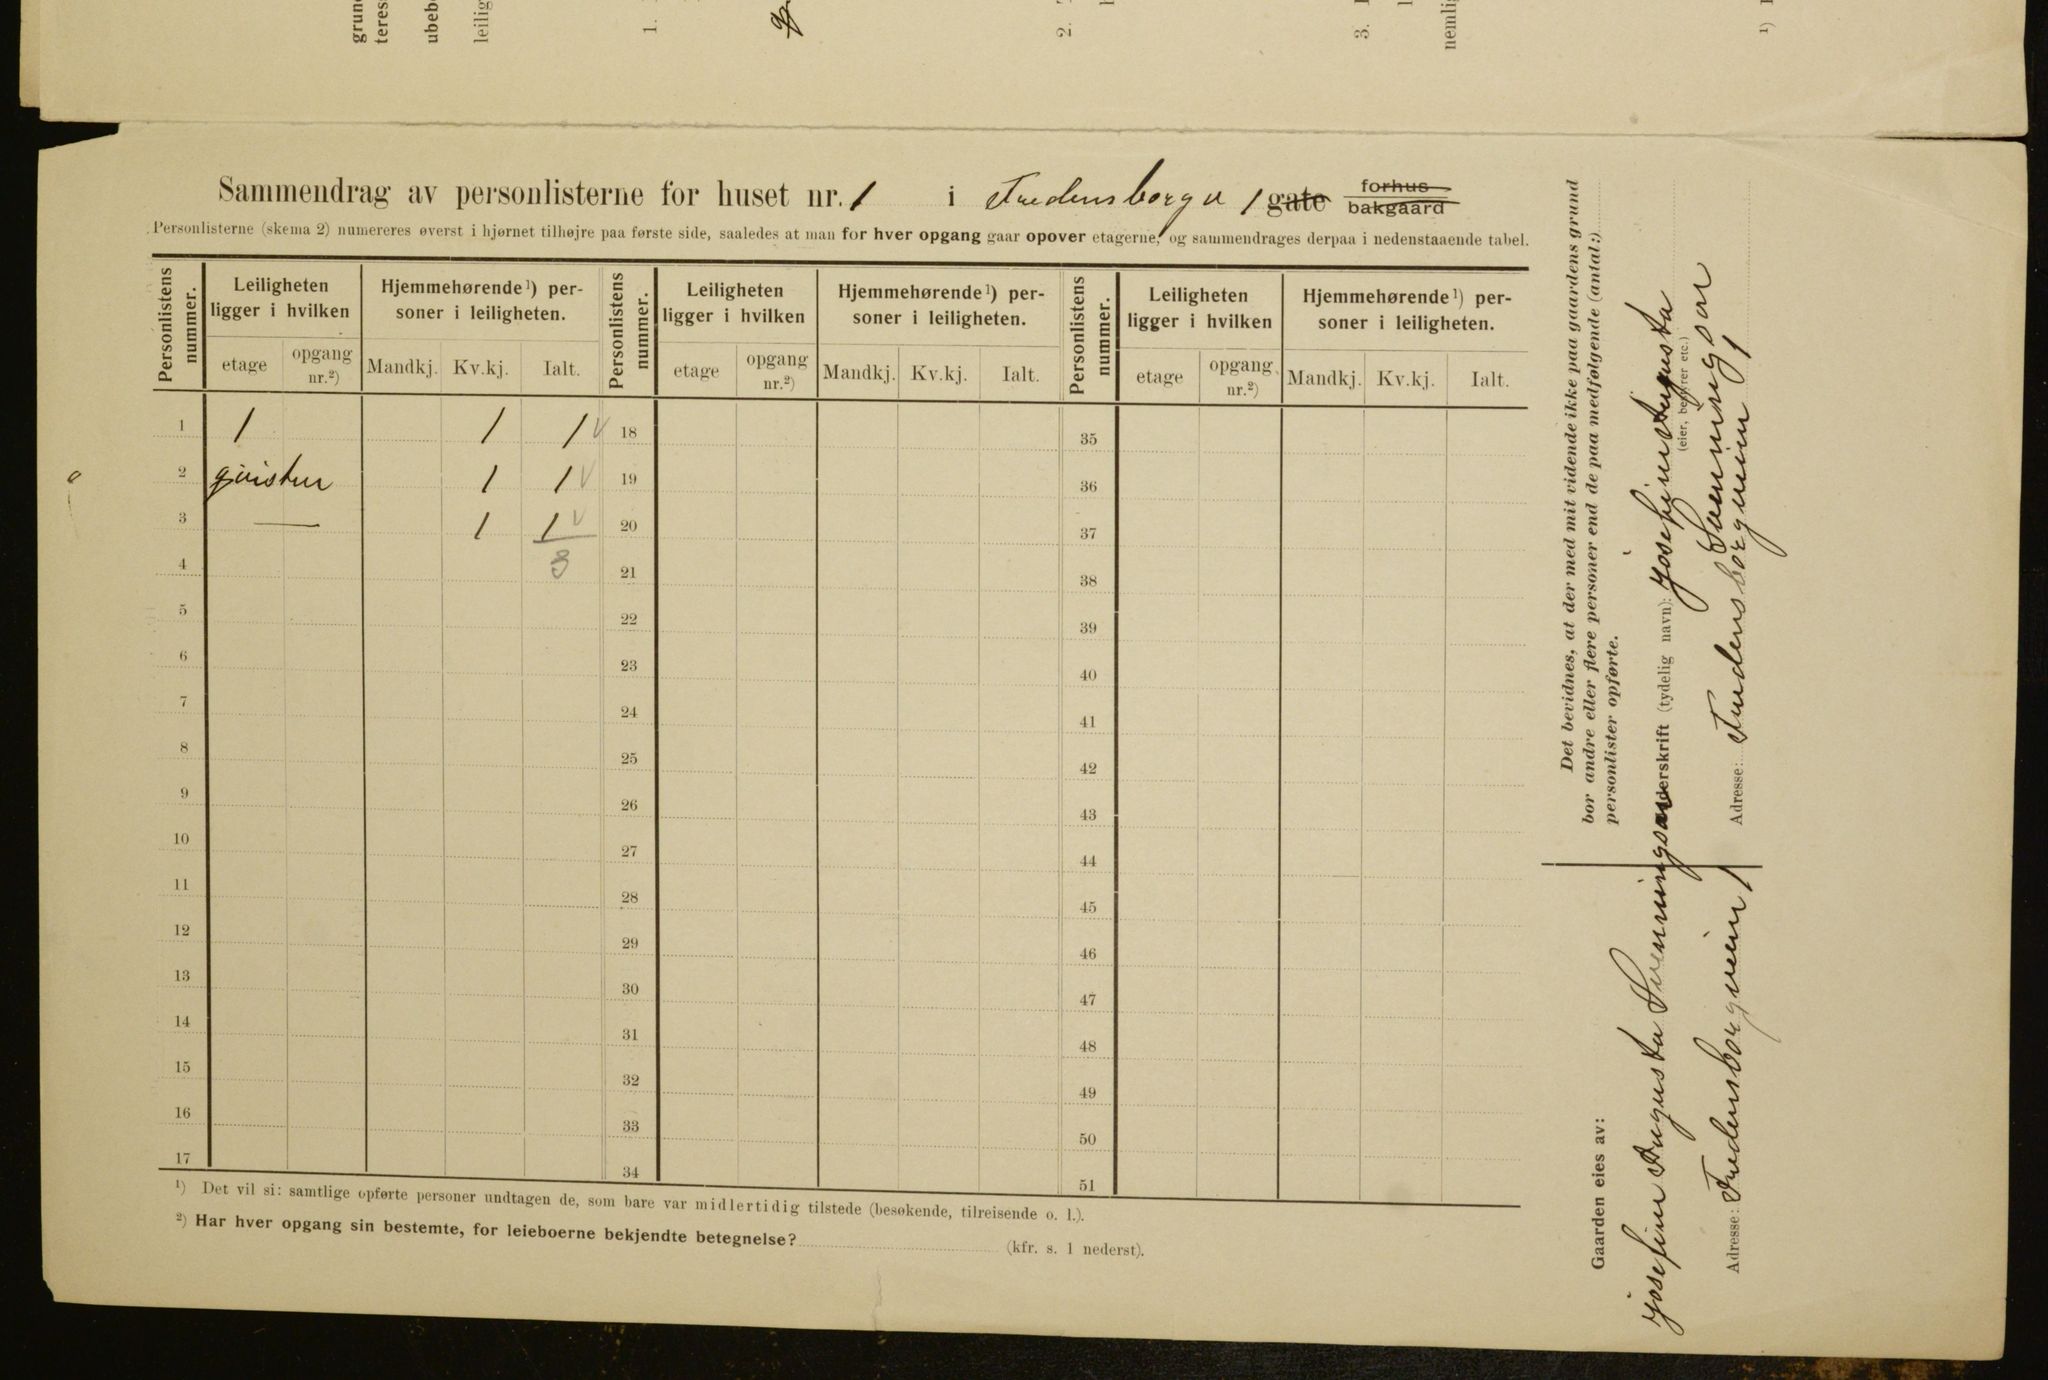 grun
teres
ubeb
leilig
1.
2.
3.
nemlig
¹)
Sammendrag av personlisterne for huset nr. 1 i Fredensborgv 1 gate forhus bakgaard
Personlisterne (skema 2) numereres øverst i hjørnet tilhøjre paa første side, saaledes at man for hver opgang gaar opover etagerne, og sammendrages derpaa i nedenstaaende tabel.
Personlistens nummer. Leiligheten ligger i hvilken Hjemmehørende ¹) personer i leiligheten. Personlistens nummer. Leiligheten ligger i hvilken Hjemmehørende ¹) personer i leiligheten. Personlistens nummer. Leiligheten ligger i hvilken Hjemmehørende ¹) personer i leiligheten.
etage opgang nr.²) Mandkj. Kv.kj. Ialt. etage opgang nr.²) Mandkj. Kv.kj. Ialt. etage opgang nr.²) Mandkj. Kv.kj. Ialt.
1 1 1 1 18 35
2 qvisten 1 1 19 36
3 — 1 1 20 37
4 3 21 38
5 22 39
6 23 40
7 24 41
8 25 42
9 26 43
10 27 44
11 28 45
12 29 46
13 30 47
14 31 48
15 32 49
16 33 50
17 34 51
¹) Det vil si: samtlige opførte personer undtagen de, som bare var midlertidig tilstede (besøkende, tilreisende o. l.).
²) Har hver opgang sin bestemte, for leieboerne bekjendte betegnelse? (kfr. s. 1 nederst).
Det bevidnes, at der med mit vidende ikke paa gaardens grund
bor andre eller flere personer end de paa medfølgende (antal:)
personlister opførte.
Underskrift (tydelig navn): Josefine Augusta
(eier, bestyrer etc.)
Svenningsen
Adresse: Fredensborgveien 1
Gaarden eies av:
Josefine Augusta Svenningsen
Adresse: Fredensborgveien 1